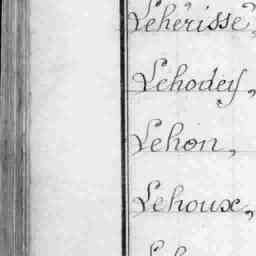 Lehérissé,
Lehodey,
Lehon,
Lehoux,